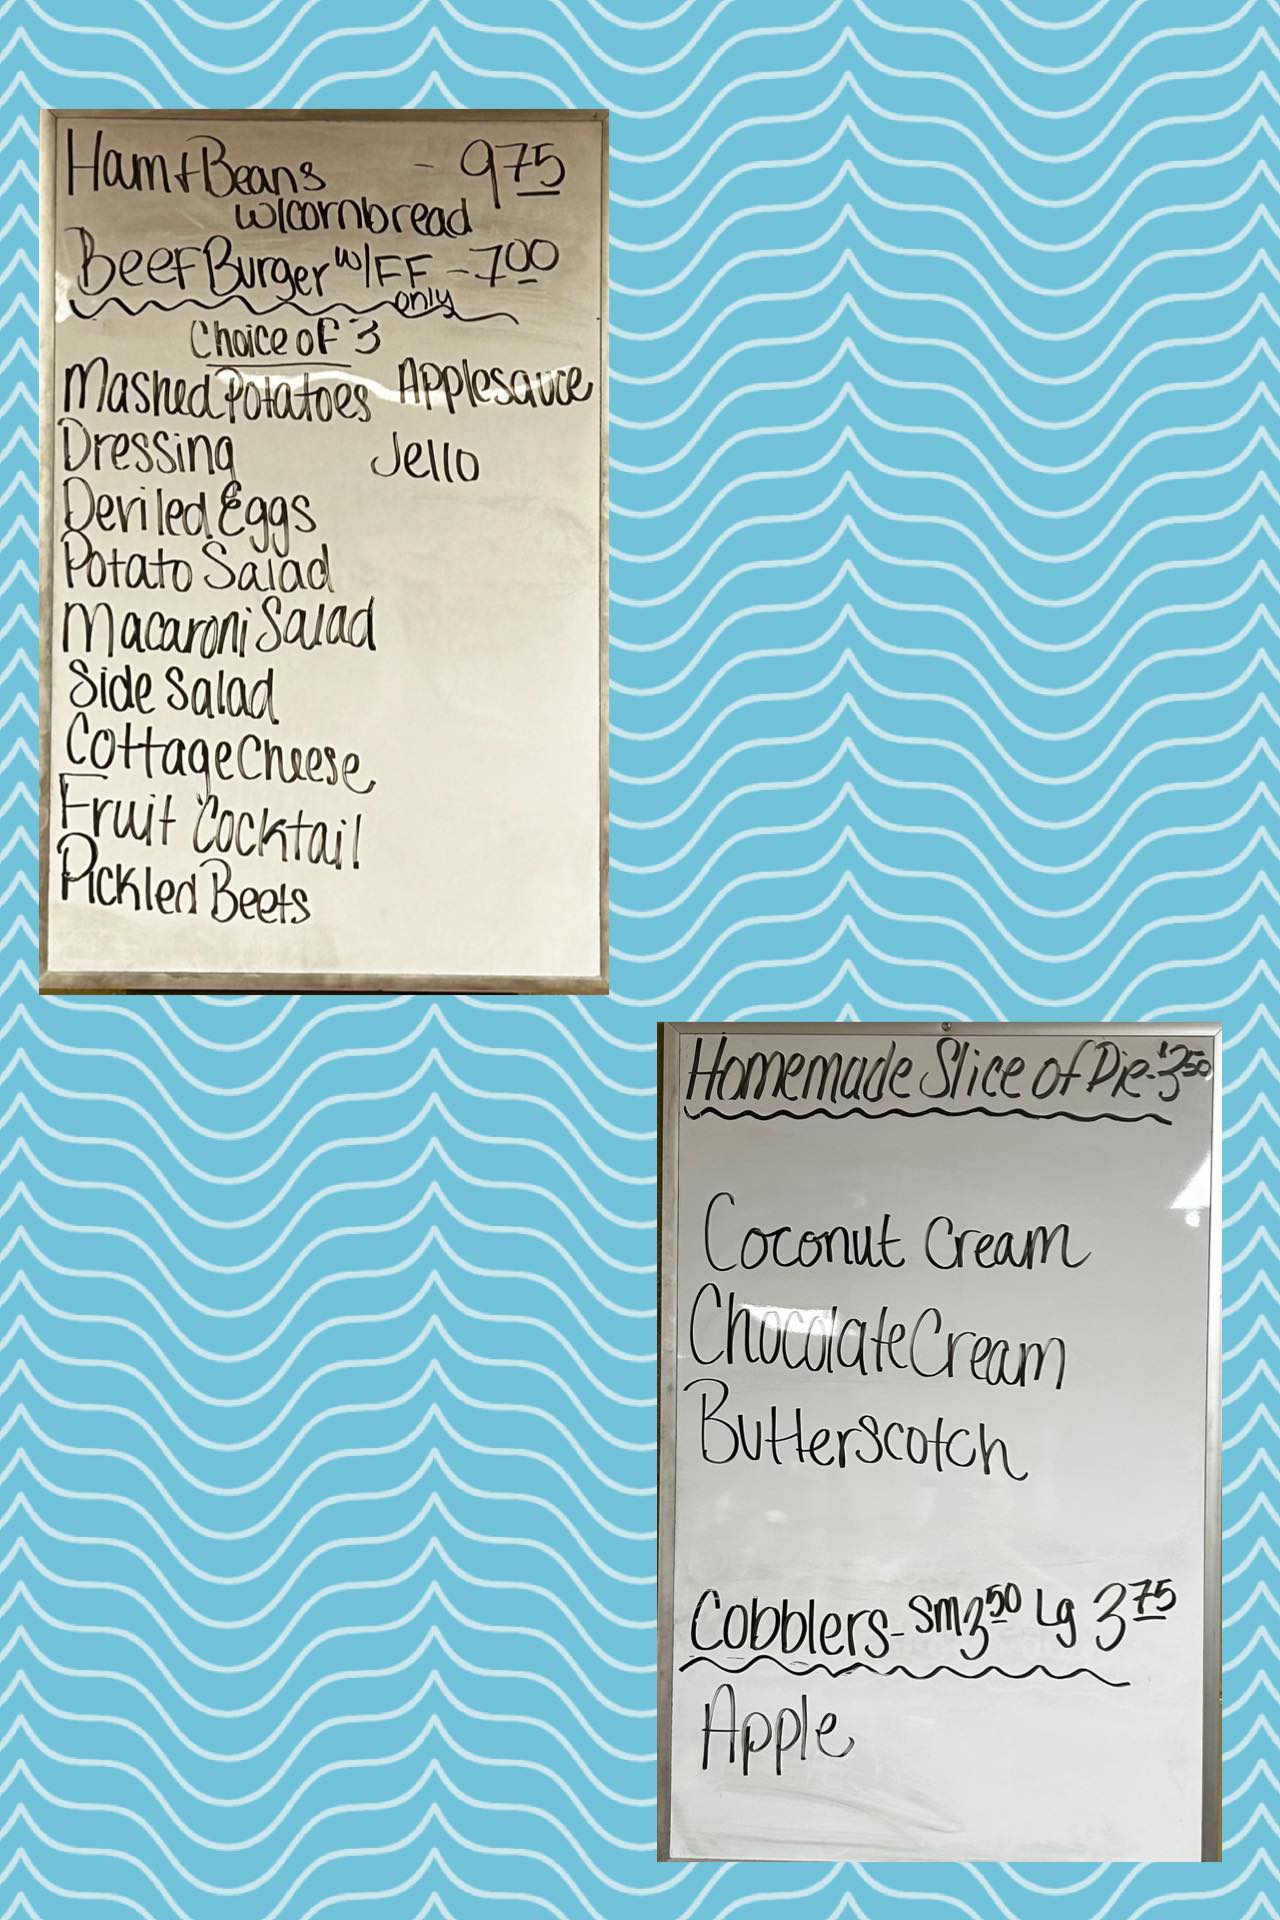 Ham + Beans - 9 75
w/cornbread
Beef Burger w/FF - 7 00
only
Choice of 3
Mashed Potatoes Applesauce
Dressing Jello
Deviled Eggs
Potato Salad
Macaroni Salad
Side Salad
Cottage Cheese
Fruit Cocktail
Pickled Beets
Homemade Slice of Pie - $3 50
Coconut Cream
Chocolate Cream
Butterscotch
Cobblers - Sm 3 50 Lg 3 75
Apple